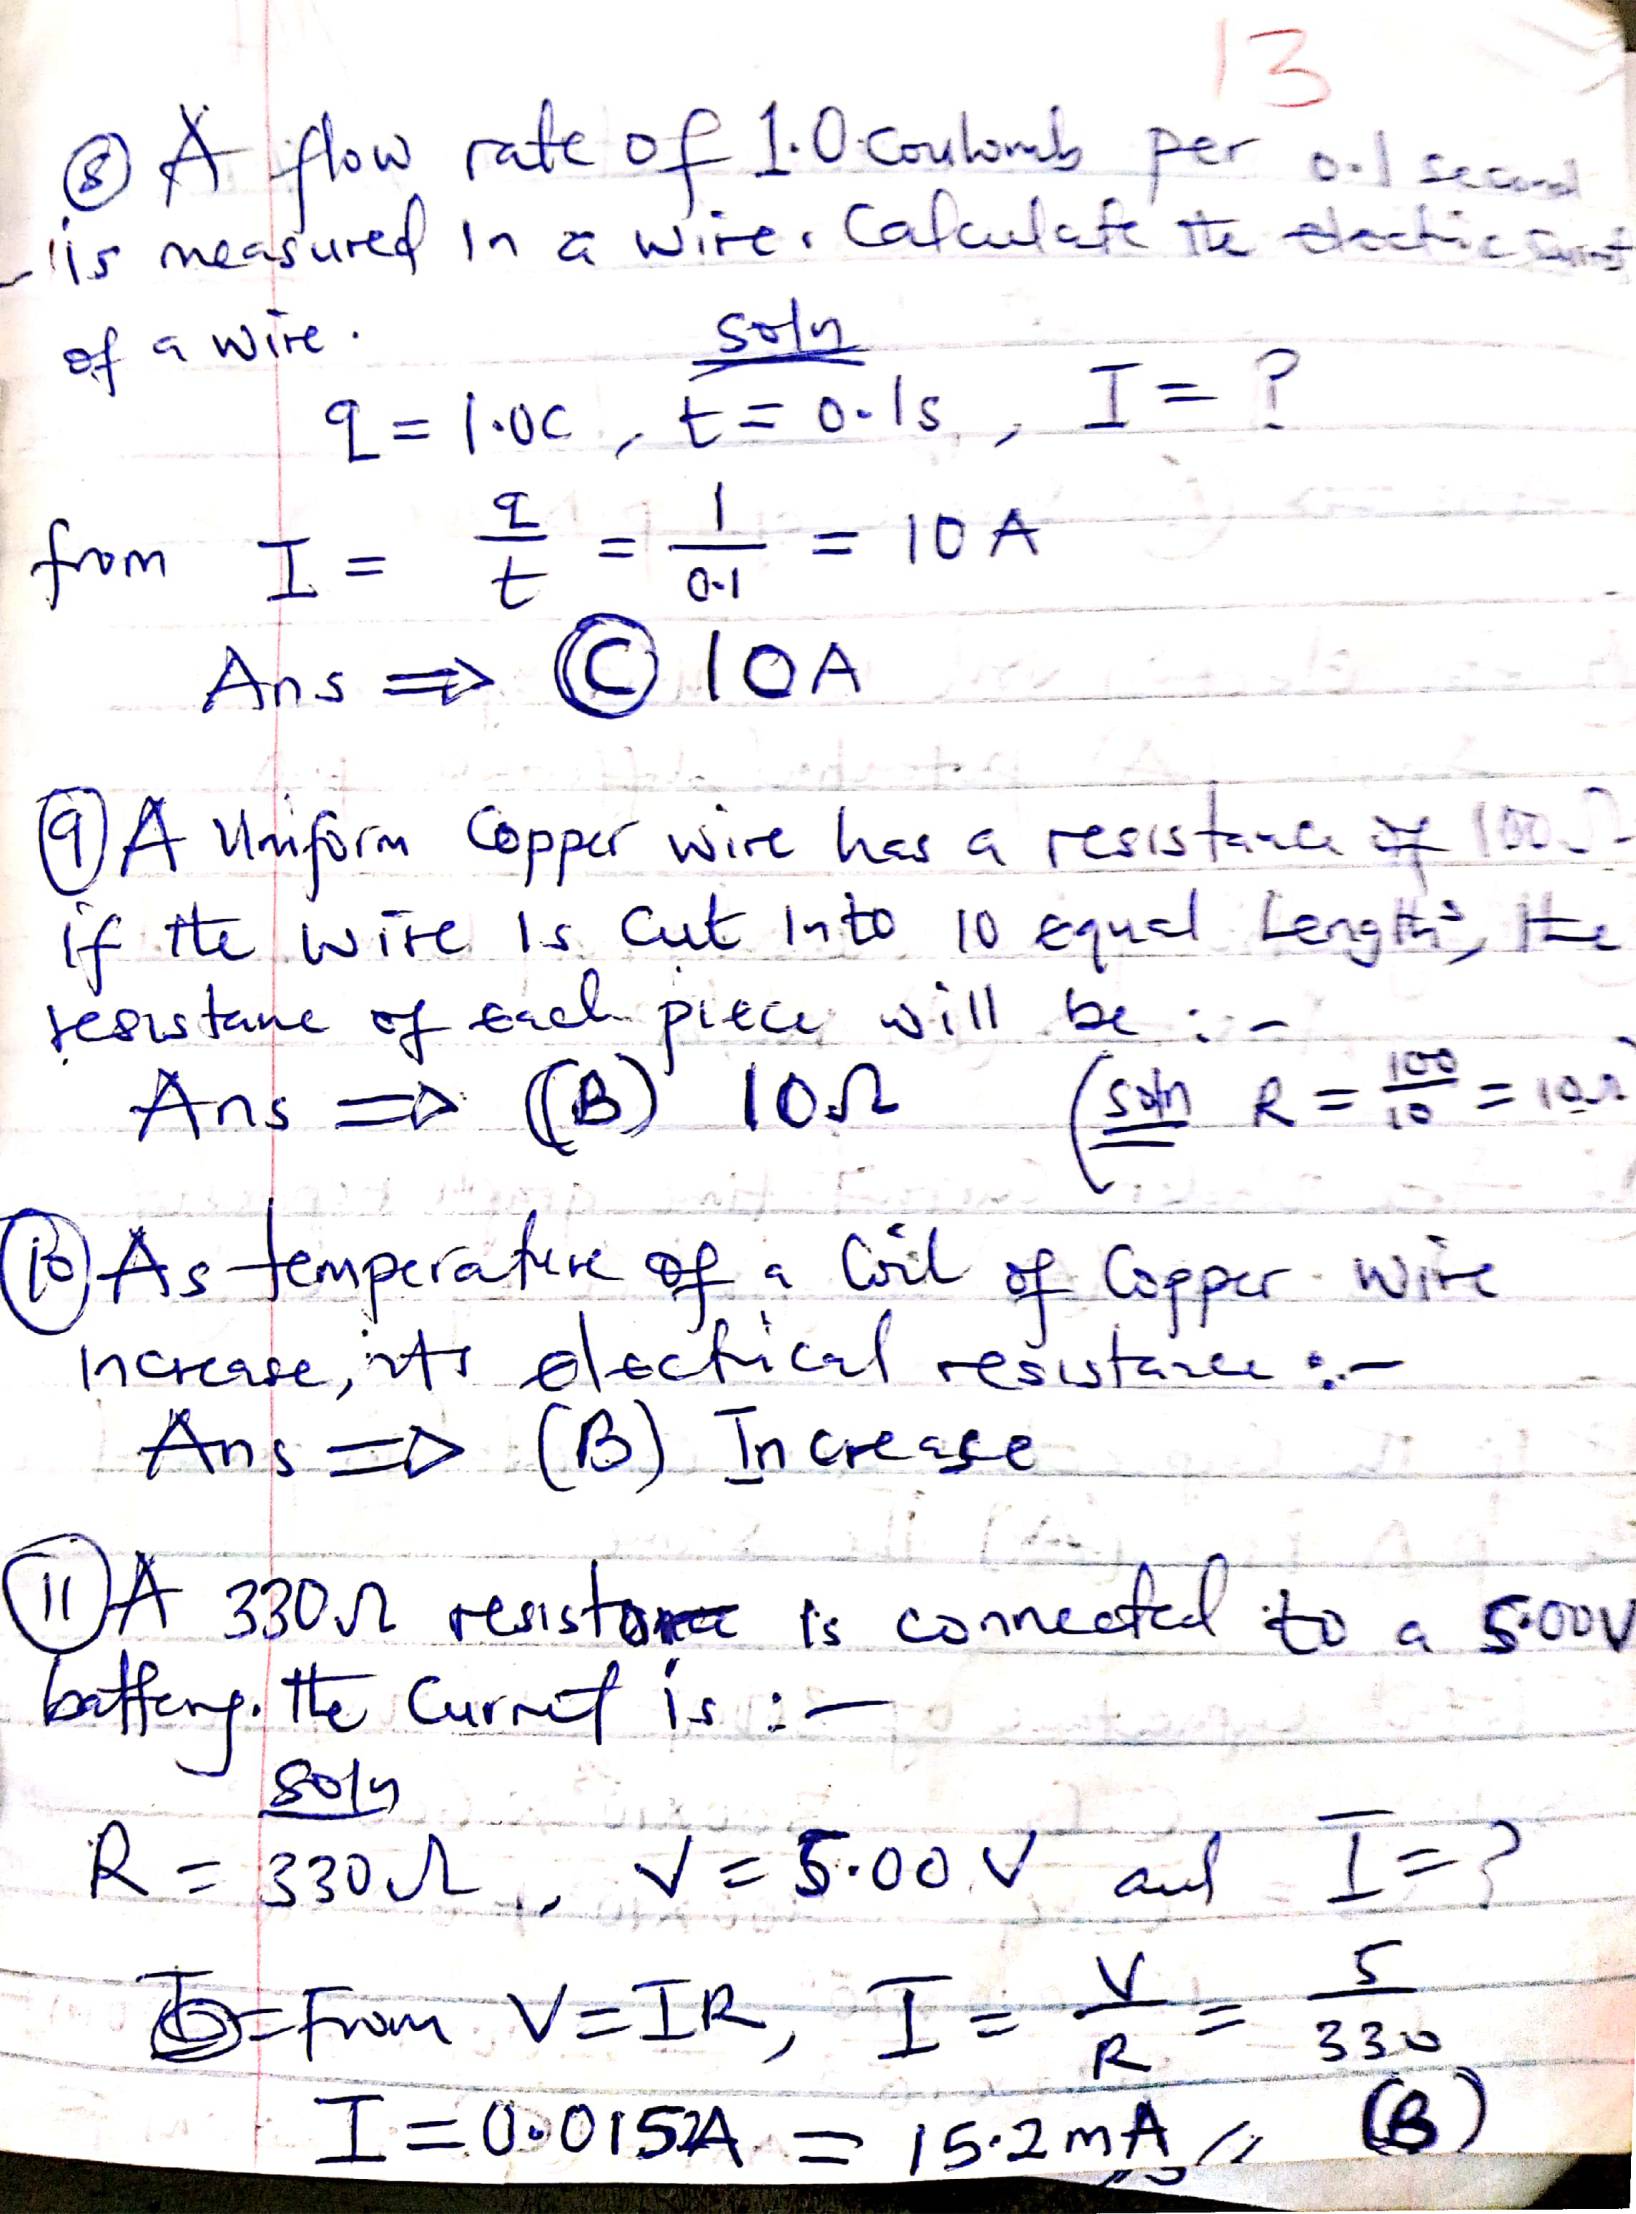 13
⑧ A flow rate of 1.0 Coulomb per 0.1 second
is measured in a wire. Calculate the electric current
of a wire.
soln
q = 1.0C, t = 0.1s, I = ?
from I = q/t = 1/0.1 = 10 A
Ans ⇒ Ⓒ 10A
⑨ A Uniform Copper wire has a resistance of 100Ω
if the wire Is Cut Into 10 equal Lengths, the
resistane of each piece will be :-
Ans ⇒ (B) 10Ω (soln R = 100/10 = 10Ω
⑩ As temperature of a Coil of Copper wire
increase, its electrical resistance :-
Ans ⇒ (B) Increase
⑪ A 330Ω resistance is connected to a 5.00V
battery. the Current is :-
soln
R = 330Ω, V = 5.00 V and I = ?
From V=IR, I = V/R = 5/330
I = 0.0152A = 15.2 mA // (B)